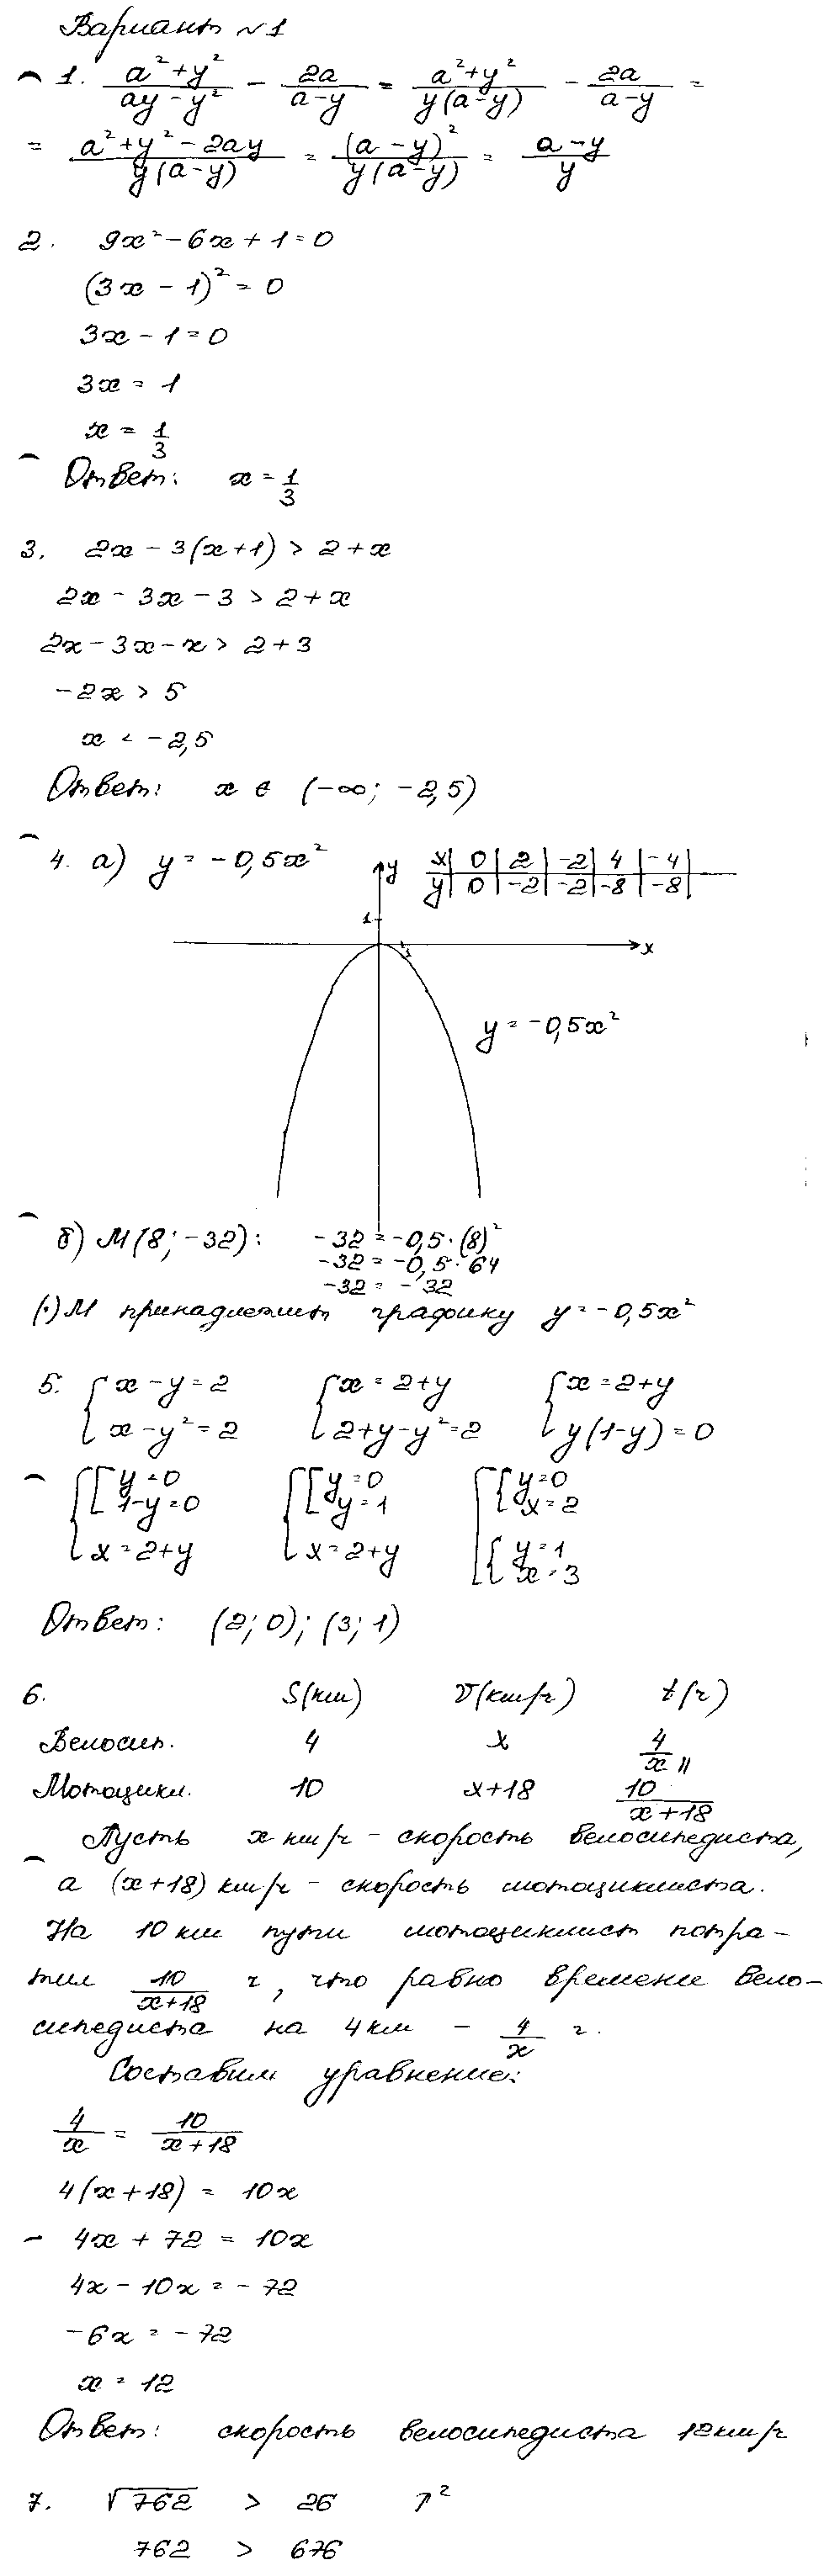 Вариант №1
1. (a²+y²)/(ay-y²) - 2a/(a-y) = (a²+y²)/(y(a-y)) - 2a/(a-y) =
= (a²+y²-2ay)/(y(a-y)) = (a-y)²/(y(a-y)) = (a-y)/y
2. 9x²-6x+1=0
(3x-1)²=0
3x-1=0
3x=1
x=1/3
Ответ: x=1/3
3. 2x-3(x+1)>2+x
2x-3x-3>2+x
2x-3x-x>2+3
-2x>5
x<-2,5
Ответ: x ∈ (-∞; -2,5)
4. а) y=-0,5x²
y
x | 0 | 2 | -2 | 4 | -4 |
y | 0 | -2 | -2 | -8 | -8 |
1
1
x
y=-0,5x²
б) M(8; -32): -32=-0,5·(8)²
-32=-0,5·64
-32=-32
(·)M принадлежит графику y=-0,5x²
5. { x-y=2 { x=2+y { x=2+y
{ x-y²=2 { 2+y-y²=2 { y(1-y)=0
{ [ y=0 { [ y=0 [ { y=0
[ 1-y=0 [ y=1 { x=2
{ x=2+y { x=2+y [ { y=1
{ x=3
Ответ: (2; 0); (3; 1)
6. S(км) V(км/ч) t(ч)
Велосип. 4 x 4/x ||
Мотоцикл. 10 x+18 10/(x+18)
Пусть x км/ч - скорость велосипедиста,
а (x+18) км/ч - скорость мотоциклиста.
На 10 км пути мотоциклист потра-
тил 10/(x+18) ч, что равно времени вело-
сипедиста на 4 км - 4/x ч.
Составим уравнение:
4/x = 10/(x+18)
4(x+18) = 10x
4x+72=10x
4x-10x=-72
-6x=-72
x=12
Ответ: скорость велосипедиста 12 км/ч
7. √762 > 26 ↑²
762 > 676